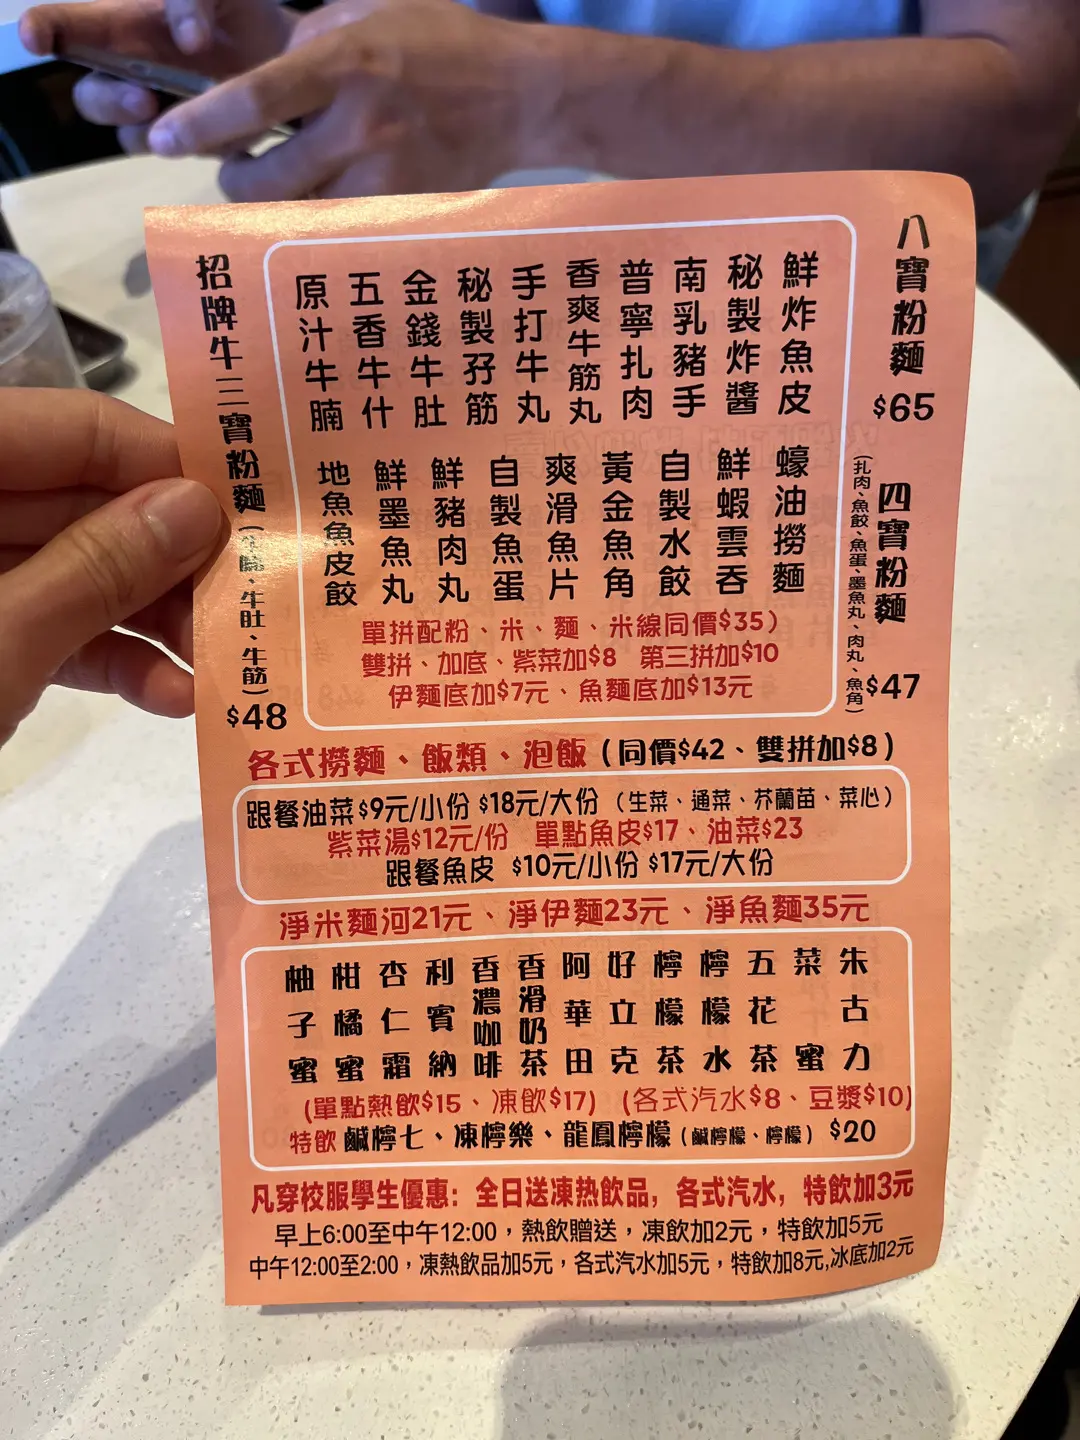 八寶粉麵
$65
四寶粉麵
(扎肉、魚餃、魚蛋、墨魚丸、肉丸、魚角)
$47
鮮炸魚皮
秘製炸醬
南乳豬手
普寧扎肉
香爽牛筋丸
手打牛丸
秘製孖筋
金錢牛肚
五香牛什
原汁牛腩
蠔油撈麵
鮮蝦雲吞
自製水餃
黃金魚角
爽滑魚片
自製魚蛋
鮮豬肉丸
鮮墨魚丸
地魚魚皮餃
單拼配粉、米、麵、米線同價$35)
雙拼、加底、紫菜加$8 第三拼加$10
伊麵底加$7元、魚麵底加$13元
招牌牛三寶粉麵(牛腩、牛肚、牛筋)
$48
各式撈麵、飯類、泡飯(同價$42、雙拼加$8)
跟餐油菜$9元/小份 $18元/大份 (生菜、通菜、芥蘭苗、菜心)
紫菜湯$12元/份 單點魚皮$17、油菜$23
跟餐魚皮 $10元/小份 $17元/大份
淨米麵河21元、淨伊麵23元、淨魚麵35元
朱古力
菜蜜
五花茶
檸檬水
檸檬茶
好立克
阿華田
香滑奶茶
香濃咖啡
利賓納
杏仁霜
柑橘蜜
柚子蜜
(單點熱飲$15、凍飲$17) (各式汽水$8、豆漿$10)
特飲 鹹檸七、凍檸樂、龍鳳檸檬(鹹檸檬、檸檬) $20
凡穿校服學生優惠: 全日送凍热飲品, 各式汽水, 特飲加3元
早上6:00至中午12:00,熱飲贈送,凍飲加2元,特飲加5元
中午12:00至2:00,凍熱飲品加5元,各式汽水加5元,特飲加8元,冰底加2元